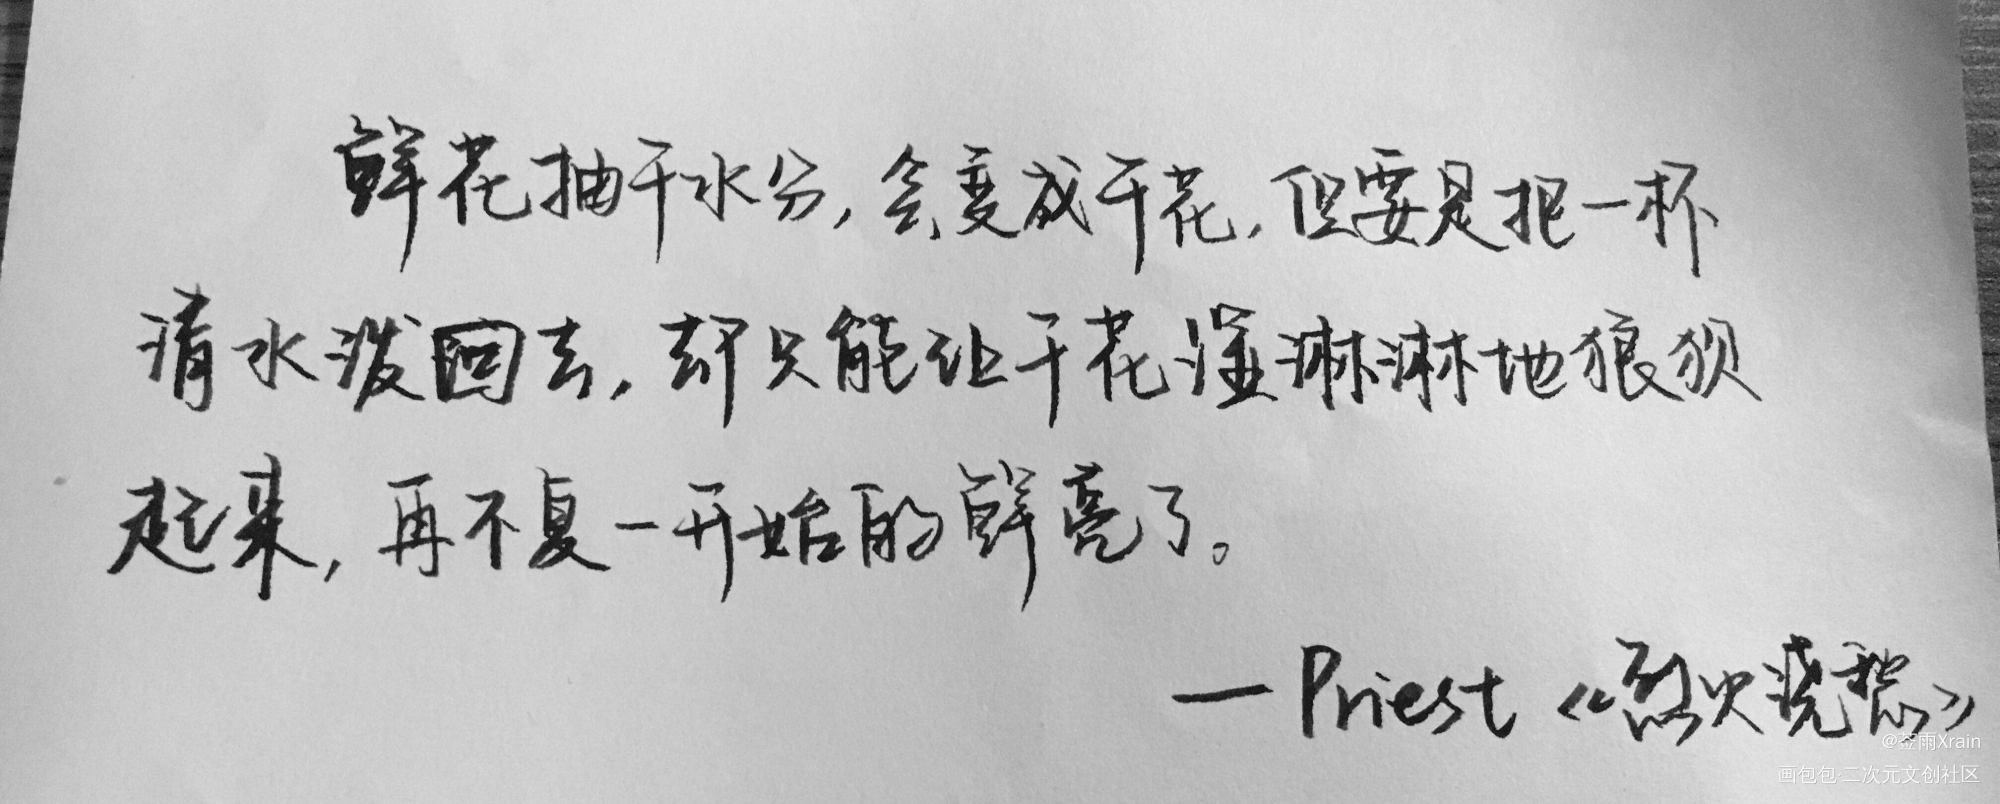 鲜花抽干水分,会变成干花,但要是把一杯
清水泼回去,却只能让干花湿淋淋地狼狈
起来,再不复一开始的鲜亮了。
—Priest《烈火浇愁》
@苍雨Xrain
画包包·二次元文创社区